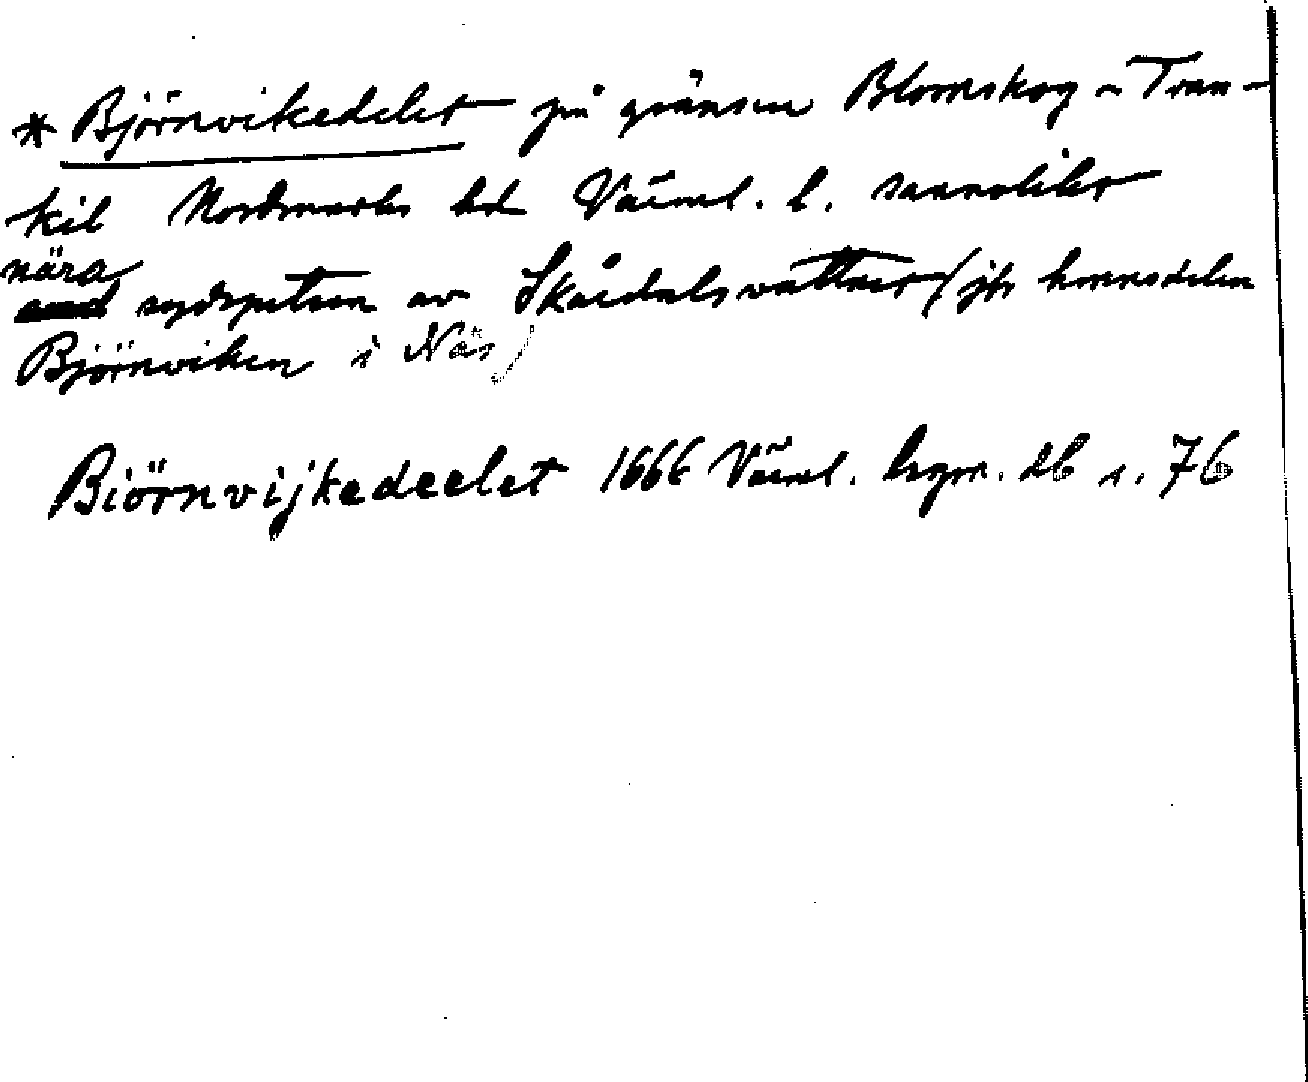 * Björnvikedelet på gränsen Blomskog – Tran-
kil Nordmarks hd Värml. l. sannolikt
nära sydspetsen av Skådalsvattnet (jfr hemmdelen
Björnviken i Näs)
Biörnvijkedeelet 1666 Värml. hgm. db s. 76